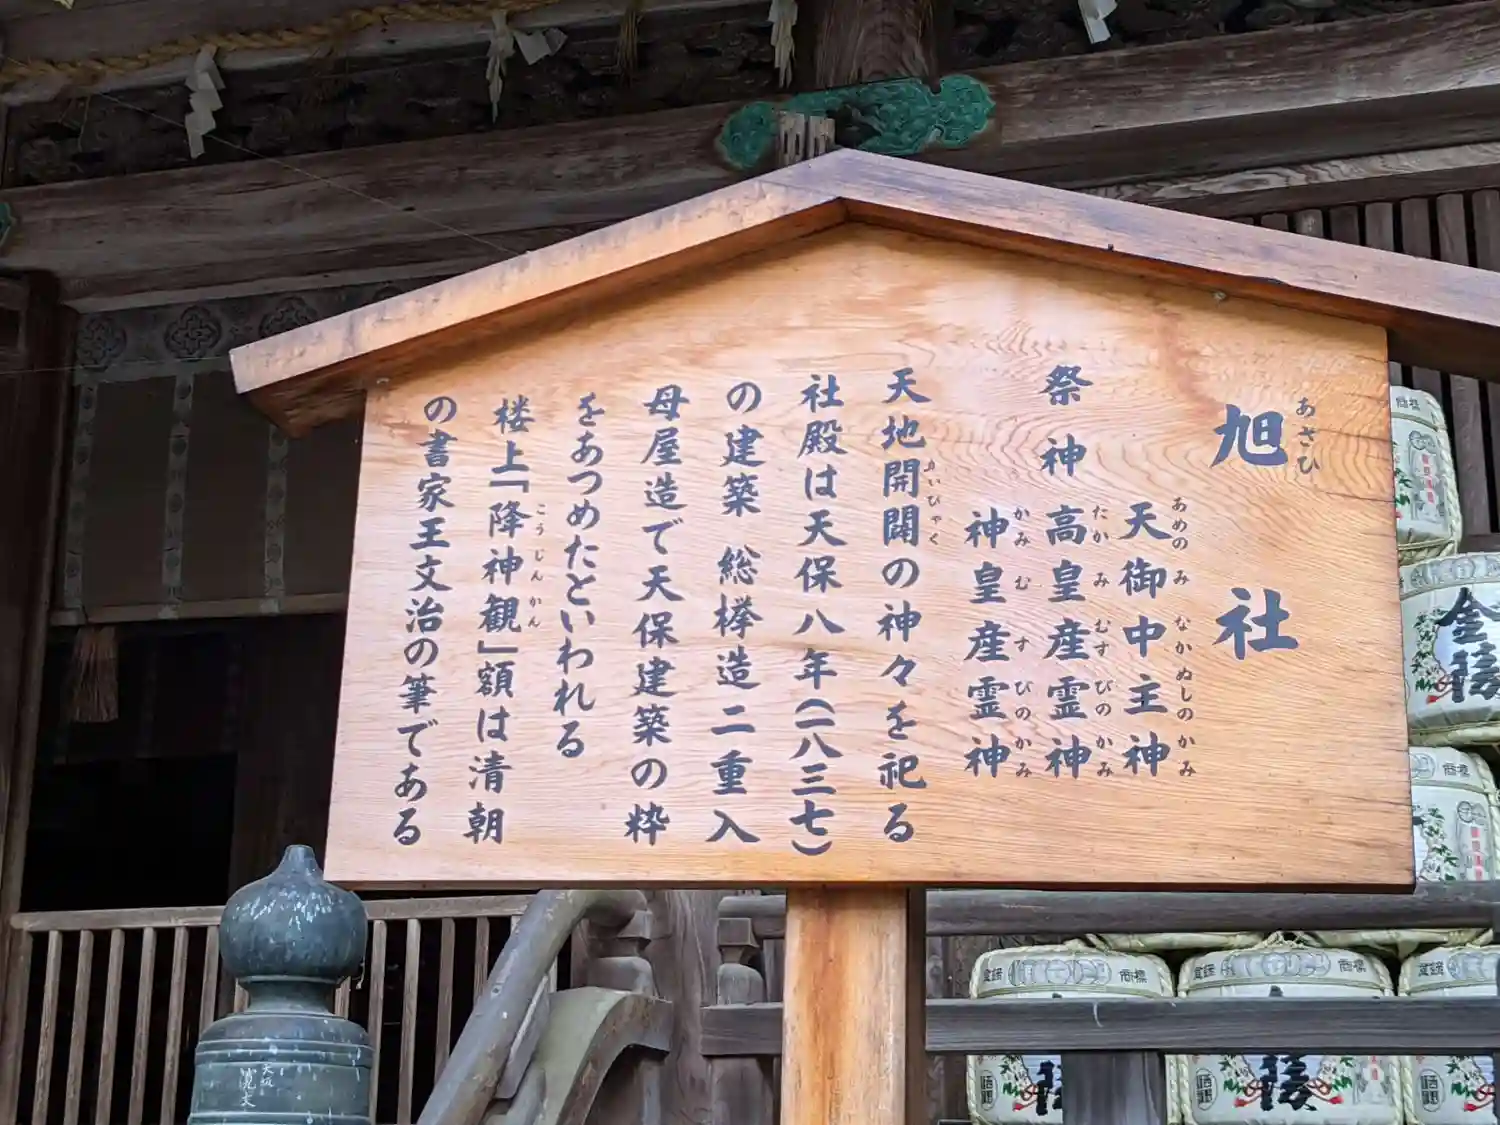 旭社
あさひ
天御中主神
あめのみなかぬしのかみ
祭神 高皇産霊神
たかみむすびのかみ
神皇産霊神
かみむすびのかみ
天地開闢の神々を祀る
かいびゃく
社殿は天保八年(一八三七)
の建築 総欅造二重入
母屋造で天保建築の粋
をあつめたといわれる
楼上「降神観」額は清朝
こうじんかん
の書家王文治の筆である
金陵